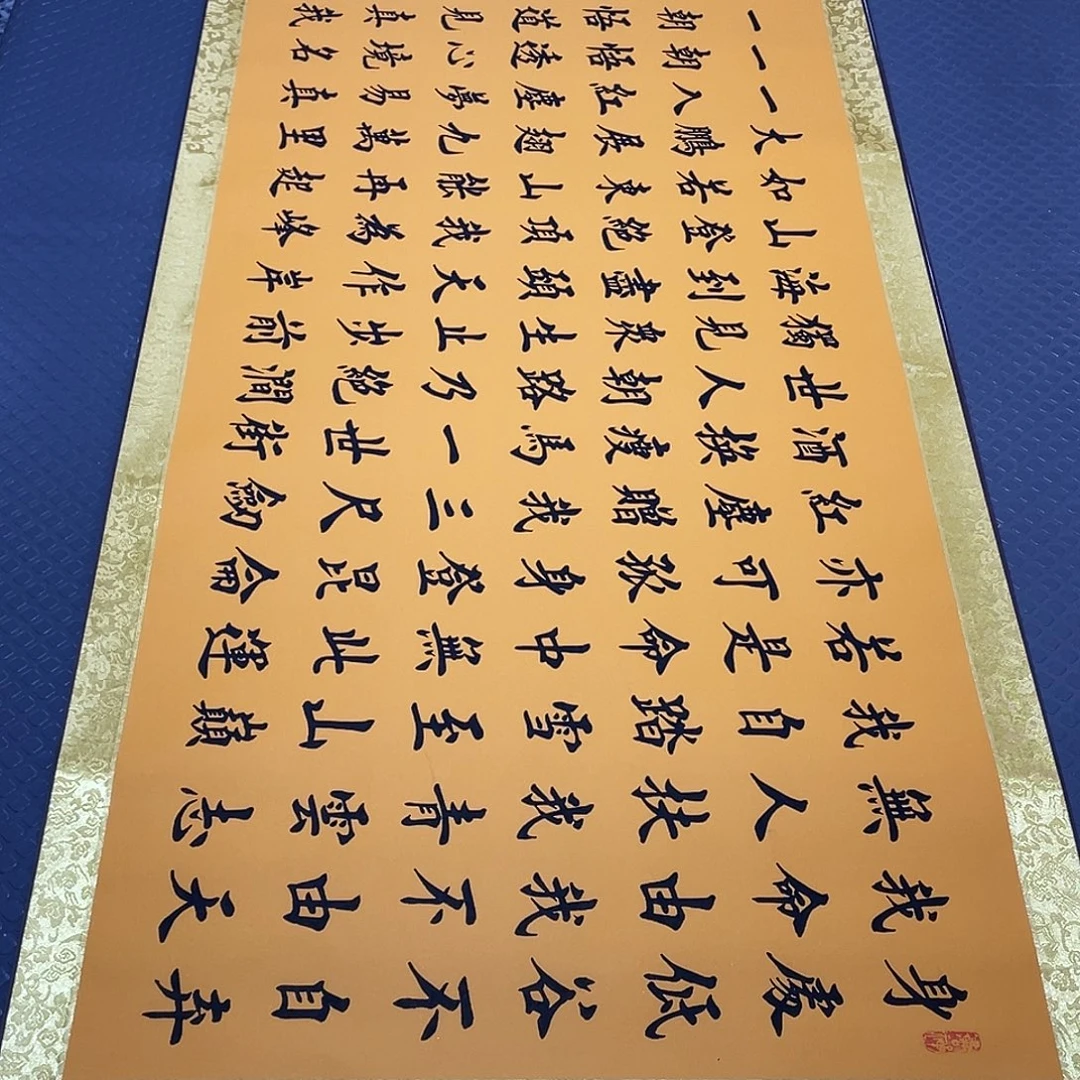 身處低谷不自弃
我命由我不由天
無人扶我青雲志
我自踏雪至山巔
若是命中無此運
亦可孤身登昆侖
紅塵贈我三尺劍
酒換瘦馬一世街
世人朝路乃絕澗
獨見衆生止步前
海到盡頭天作岸
山登絕頂我為峰
如若東山能再起
大鵬展翅九萬里
一入紅塵夢易真
一朝悟透心境名
一朝悟道見真我